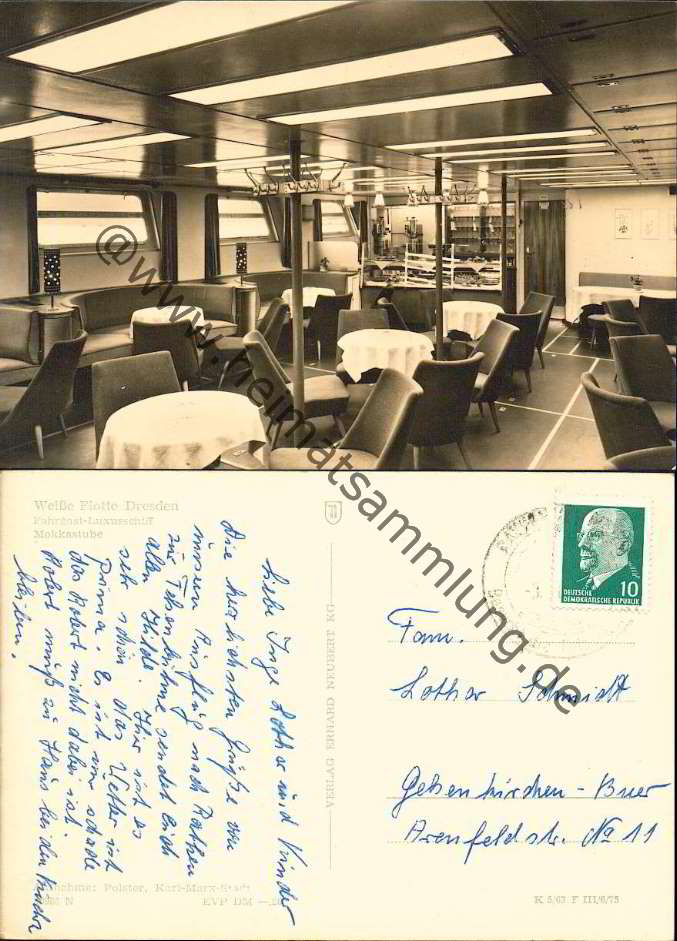 @www.heimatsammlung.de
Weiße Flotte Dresden
Fahrgast-Luxusschiff
Mokkastube
liebe Inge Lothar und Kinder
Die herzlichsten Grüße von
unseren Ausflug nach Rathen
zur Felsenbühne sendet Euch
allen Hilde. Hier ist es
sehr schön das Wetter ist
prima. Es ist nur schade
das Robert nicht dabei ist.
Robert muß zu Haus bei den Kinder
bleiben.
VERLAG ERHARD NEUBERT KG
DEUTSCHE
DEMOKRATISCHE REPUBLIK
10
Fam.
Lothar Schmidt
Gelsenkirchen - Buer
Arenfeldstr. No 11
Aufnahme: Polster, Karl-Marx-Stadt
N EVP DM
K 5/63 F III/6/75